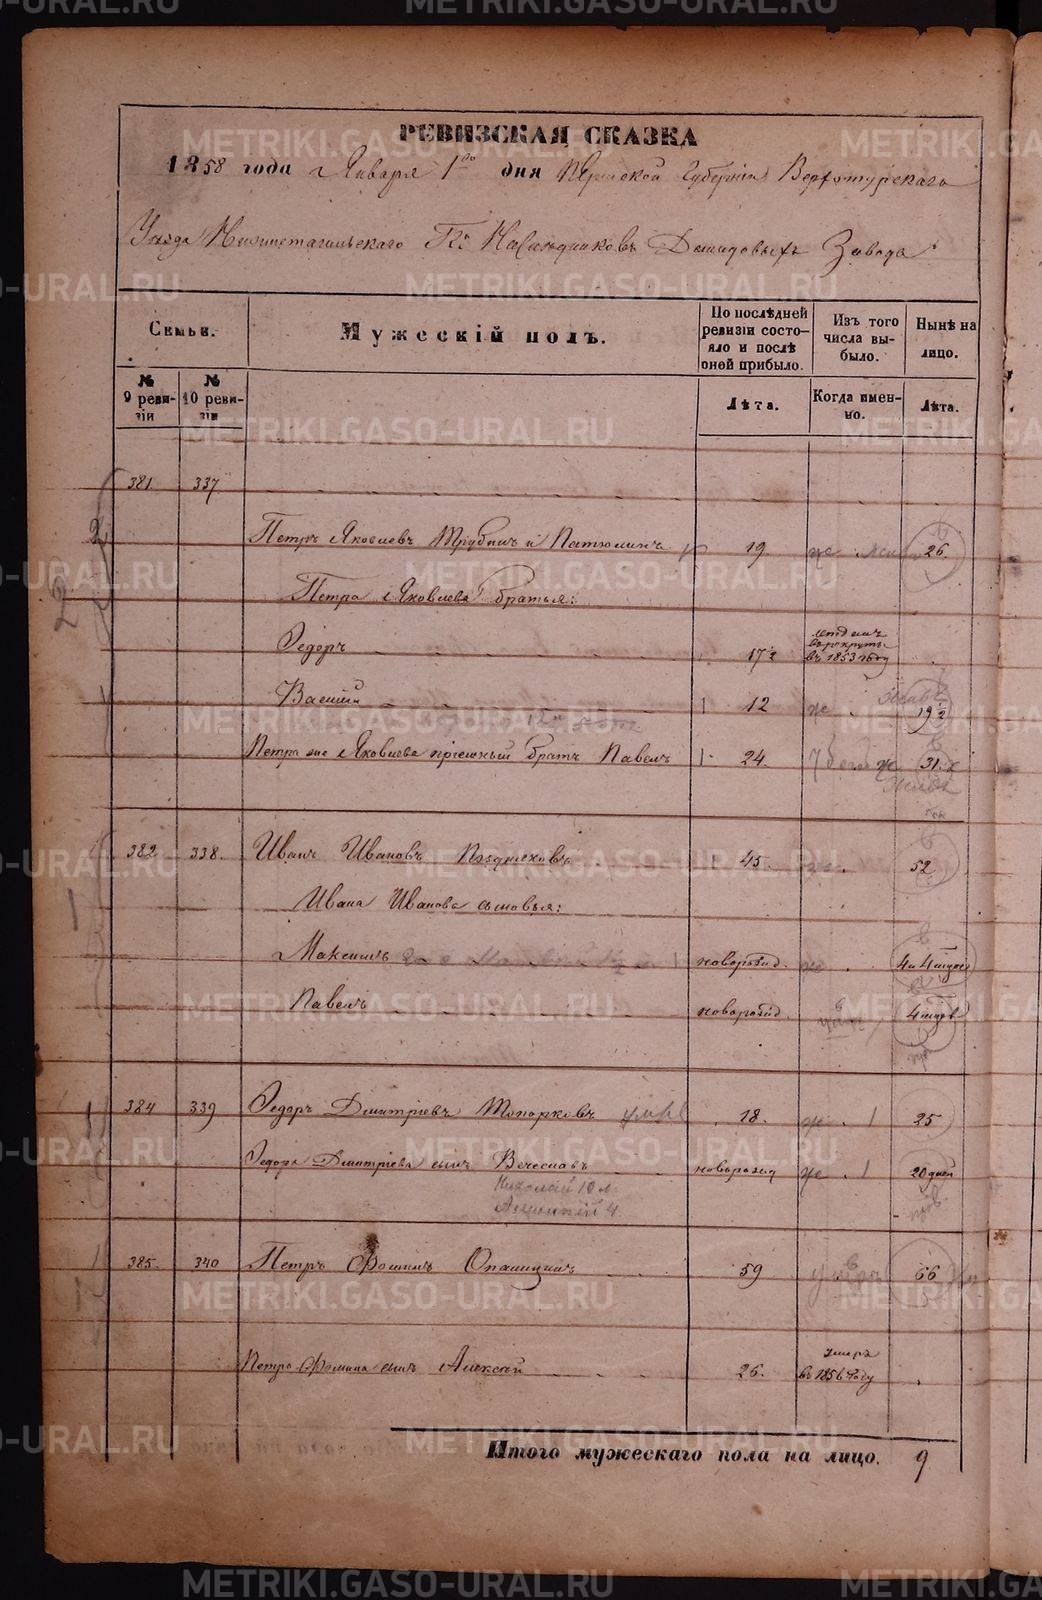 РЕВИЗСКАЯ СКАЗКА
1858 года Января 1го дня Пермской Губернии Верхотурскаго
Уезда Нижнетагильскаго Гг. Наследниковъ Демидовыхъ Завода
Семьи.
Мужескій полъ.
По послѣдней ревизіи состо-
яло и послѣ
оней прибыло.
Изъ того
числа вы-
было.
Нынѣ на
лицо.
№
9 реви-
зіи
№
10 реви-
зіи
Лѣта.
Когда имен-
но.
Лѣта.
381 337
Петръ Яковлевъ Трубинъ и Патюлинъ 19 26.
Петра Яковлева братья:
Федоръ 17½ отданъ въ рекруты въ 1853 году
Василій 12 19½
Петра же Яковлева пріемный братъ Павелъ 24. 31.
382 338. Иванъ Ивановъ Поздняковъ 45. 52
Ивана Иванова сыновья:
Максимъ новорожд.
Павелъ новорожд.
384 339 Федоръ Дмитріевъ Топорковъ 18. 25
Федора Дмитріева сынъ Вечеславъ новорожд 20 дней
Николай 10 л.
385. 340 Петръ Фоминъ 59 66
Петра Фомина сынъ Алексей 26. умеръ въ 1856 году
Итого мужескаго пола на лицо. 9
METRIKI.GASO-URAL.RU